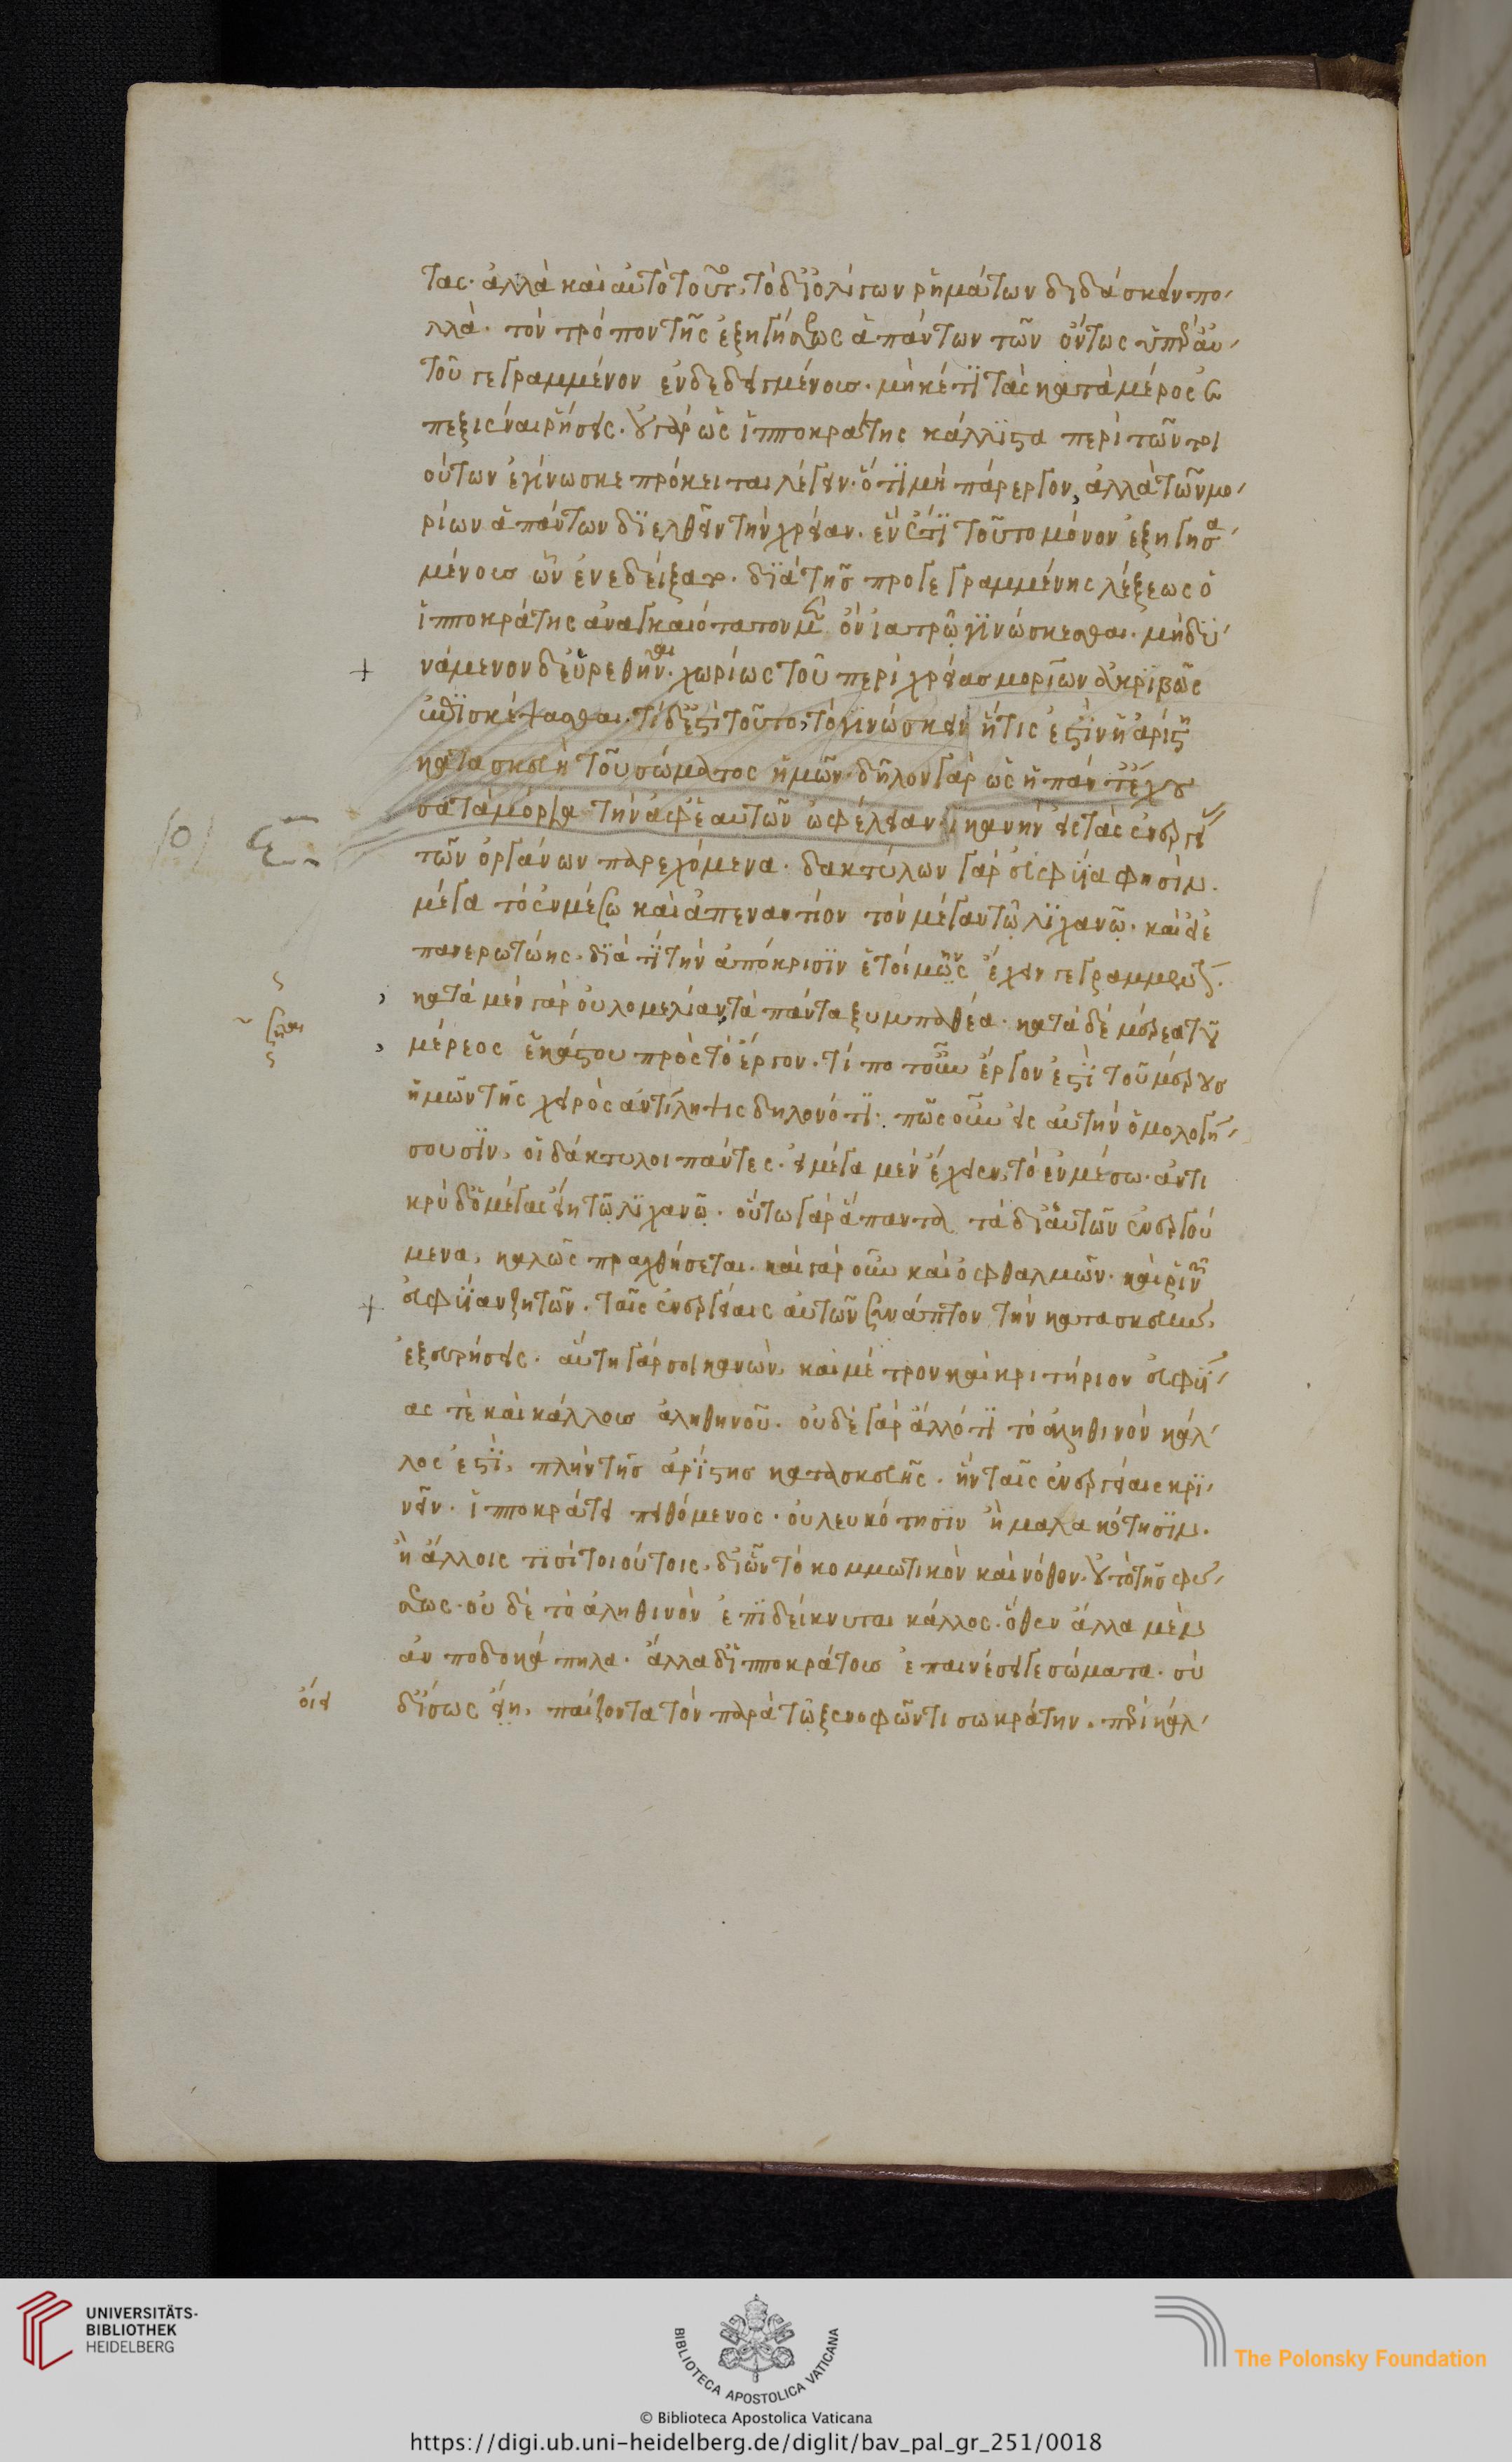 τας· ἀλλὰ καὶ αὐτὸ τοῦτο, τὸ δι' ὀλίγων ῥημάτων διδάσκειν πο
λλά· τὸν τρόπον τῆς ἐξηγήσεως ἁπάντων τῶν οὕτως ὑπ' αὐ
τοῦ γεγραμμένον ἐνδεδειγμένοις· μηκέτι τὰς κατὰ μέρος
ἐναιρήσεις· γὰρ ὡς ἱπποκράτης κάλλιστα περὶ τῶν τοι
ούτων ἐγίνωσκε πρόκειται λέγειν· ὅτι μὴ πάρεργον, ἀλλὰ τῶν μο
ρίων ἁπάντων διελθεῖν τὴν χρείαν· ἓν ἔτι τοῦτο μόνον ἐξηγησα
μένοις ὧν ἐνεδείξατο· διὰ τῆς προγεγραμμένης λέξεως ὁ
ἱπποκράτης ἀναγκαιότατον μὲν ὂν ἰατρῷ γινώσκεσθαι· μὴ δυ
νάμενον δ' εὑρεθῆναι· χωρὶς τοῦ περὶ χρείας μορίων ἀκριβῶς
ἐπισκέψασθαι· τί δ' ἐστὶ τοῦτο, τὸ γινώσκειν ἥτις ἐστὶν ἡ ἀρίστη
κατασκευὴ τοῦ σώματος ἡμῶν· δῆλον γὰρ ὡς ἡ πάντ' ἔχου
σα τὰ μόρια τὴν ἀφ' ἑαυτῶν ὠφέλειαν· ἱκανὴν εἰς τὰς ἐνεργείας
τῶν ὀργάνων παρεχόμενα· δακτύλων γὰρ εὐφυΐα φησίν·
μέγα τὸ ἐν μέσῳ καὶ ἀπεναντίον τὸν μέγαν τῷ λιχανῷ· καὶ εἰ ἐ
πανερωτώης· διὰ τί τὴν ἀπόκρισιν ἑτοίμως ἔχειν γεγραμμένην·
κατὰ μὲν γὰρ οὐλομελίαν τὰ πάντα ξυμπαθέα· κατὰ δὲ μέρεα τὰ
μέρεος ἑκάστου πρὸς τὸ ἔργον· τί ποτ' οὖν ἔργον ἐστὶ τοῦ μέρους
ἡμῶν τῆς χειρὸς ἀντίληψις δηλονότι· πῶς οὖν εἰς αὐτὴν ὁμολογή
σουσιν, οἱ δάκτυλοι πάντες· εἰ μέγα μὲν ἔχειεν, τὸ ἐν μέσῳ· ἀντι
κρὺ δ' ὁ μέγας εἴη τῷ λιχανῷ· οὕτω γὰρ ἅπαντα τὰ δι' αὐτῶν ἐνεργού
μενα, καλῶς πραχθήσεται· καὶ γὰρ οὖν καὶ ὀφθαλμῶν· καὶ ῥινῶν
εὐφυΐαν ζητῶν· ταῖς ἐνεργείαις αὐτῶν συνάπτον τὴν κατασκευὴν,
ἐξευρήσεις· αὕτη γάρ σοι κανὼν, καὶ μέτρον καὶ κριτήριον εὐφυΐ
ας τὲ καὶ κάλλους ἀληθινοῦ· οὐδὲ γὰρ ἄλλό τι τὸ ἀληθινὸν κάλ
λος ἐστὶ, πλὴν τῆς ἀρίστης κατασκευῆς· ἣν ταῖς ἐνεργείαις κρί
νειν· ἱπποκράτει πειθόμενος· οὐ λευκότησιν ἢ μαλακότησιν·
ἢ ἄλλοις τισὶ τοιούτοις, δι' ὧν τὸ κομμωτικὸν καὶ νόθον· οὐ τὸ τῆς φύ
σεως· οὐδὲ τὸ ἀληθινὸν ἐπιδείκνυται κάλλος· ὅθεν ἄλλα μὲν
ἀνποδοκάπηλα· ἄλλα δ' ἱπποκράτους ἐπαινέσειε σώματα· σὺ
οἴει
δ' ἴσως εἴη, παίζοντα τὸν παρὰ τῷ ξενοφῶντι σωκράτην, περὶ κάλ
UNIVERSITÄTS-
BIBLIOTHEK
HEIDELBERG
BIBLIOTECA APOSTOLICA VATICANA
The Polonsky Foundation
© Biblioteca Apostolica Vaticana
https://digi.ub.uni-heidelberg.de/diglit/bav_pal_gr_251/0018